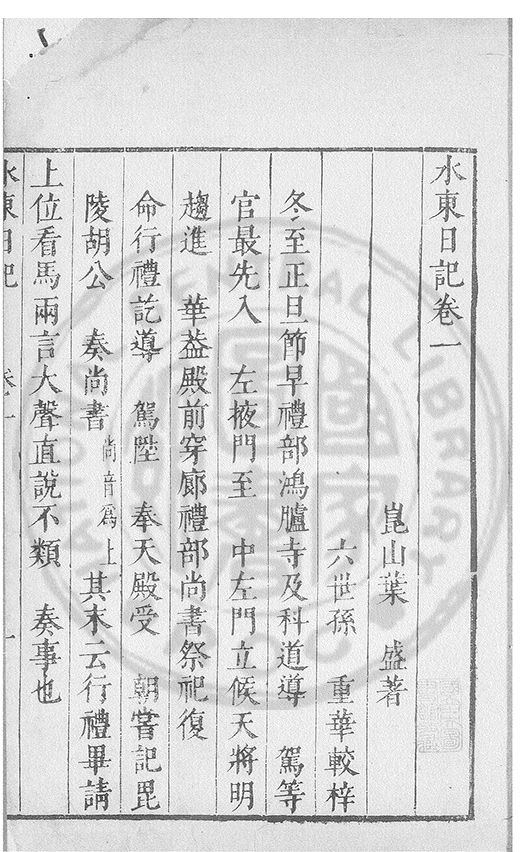 水東日記卷一
崑山葉 盛著
六世孫 重華較梓
冬至正旦節早禮部鴻臚寺及科道導 駕等
官最先入 左掖門至 中左門立候天將明
趨進 華葢殿前穿廊禮部尚書祭祀復
命行禮訖導 駕陞 奉天殿受 朝嘗記毘
陵胡公 奏尚書尚音為上其末云行禮畢請
上位看馬兩言大聲直說不類 奏事也
水東日記 卷一 一